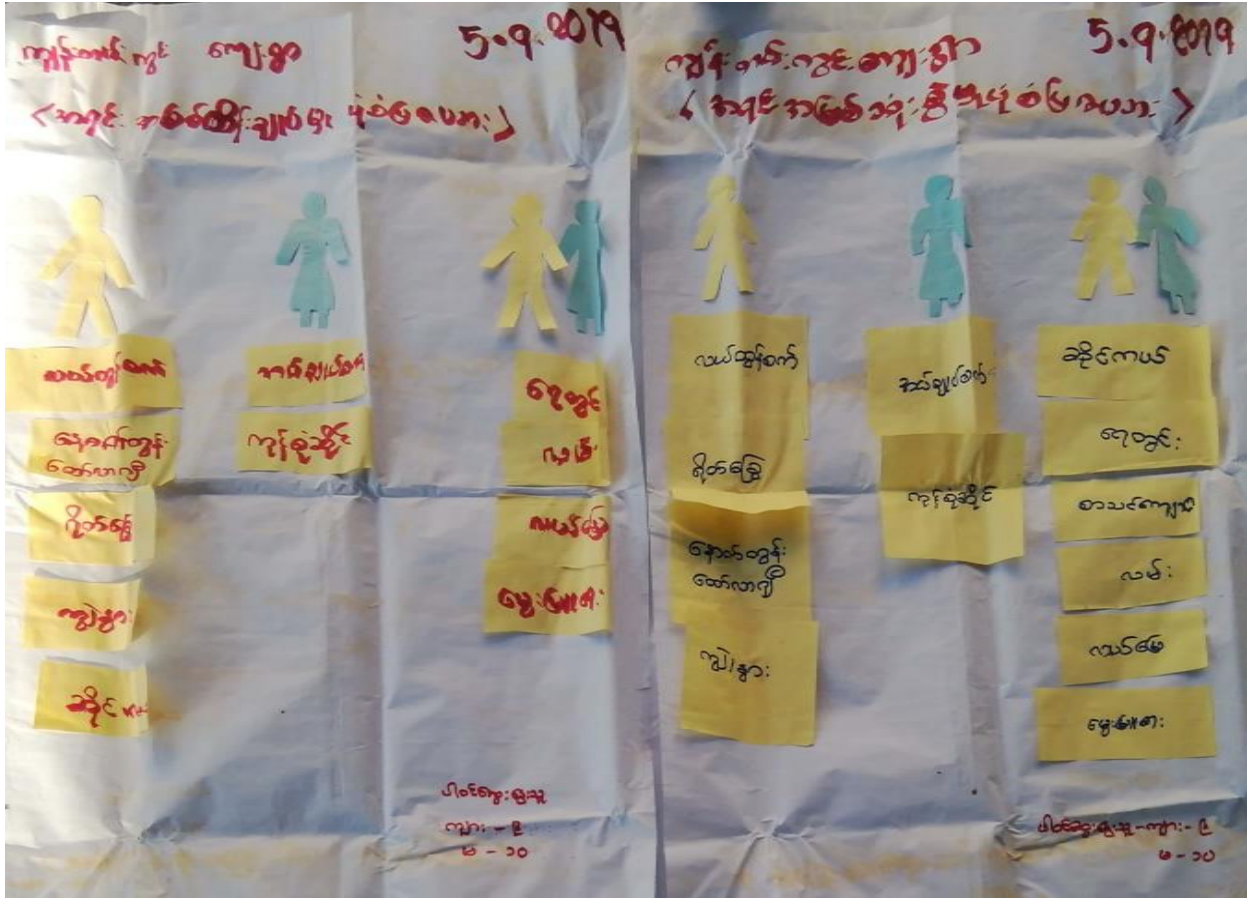 ကျွန်းတောင်းကွင်း ကျေးရွာ
5.9.2019
<အရင်းအမြစ်ထိန်းချုပ်မှု ပုံစံပြဇယား>
လယ်ထွန်စက်
နောက်တွန်း
ထော်လာဂျီ
ရိတ်ခြွေ
ကျွဲ၊နွား
ဆိုင်ကယ်
အပ်ချုပ်စက်
ကုန်စုံဆိုင်
ရေတွင်း
လမ်း
လယ်မြေ
မွေးမြူရေး
ပါဝင်ဆွေးနွေးသူ
ကျား - ၉
မ - ၁၀
5.9.2019
<အရင်းအမြစ်သုံးစွဲမှုပုံစံပြဇယား>
လယ်ထွန်စက်
ရိတ်ခြွေ
နောက်တွန်း
ထော်လာဂျီ
ကျွဲ၊နွား
အပ်ချုပ်စက်
ကုန်စုံဆိုင်
ဆိုင်ကယ်
ရေတွင်း
စာသင်ကျောင်း
လမ်း
လယ်မြေ
မွေးမြူရေး
ပါဝင်ဆွေးနွေးသူ - ကျား - ၉
မ - ၁၀